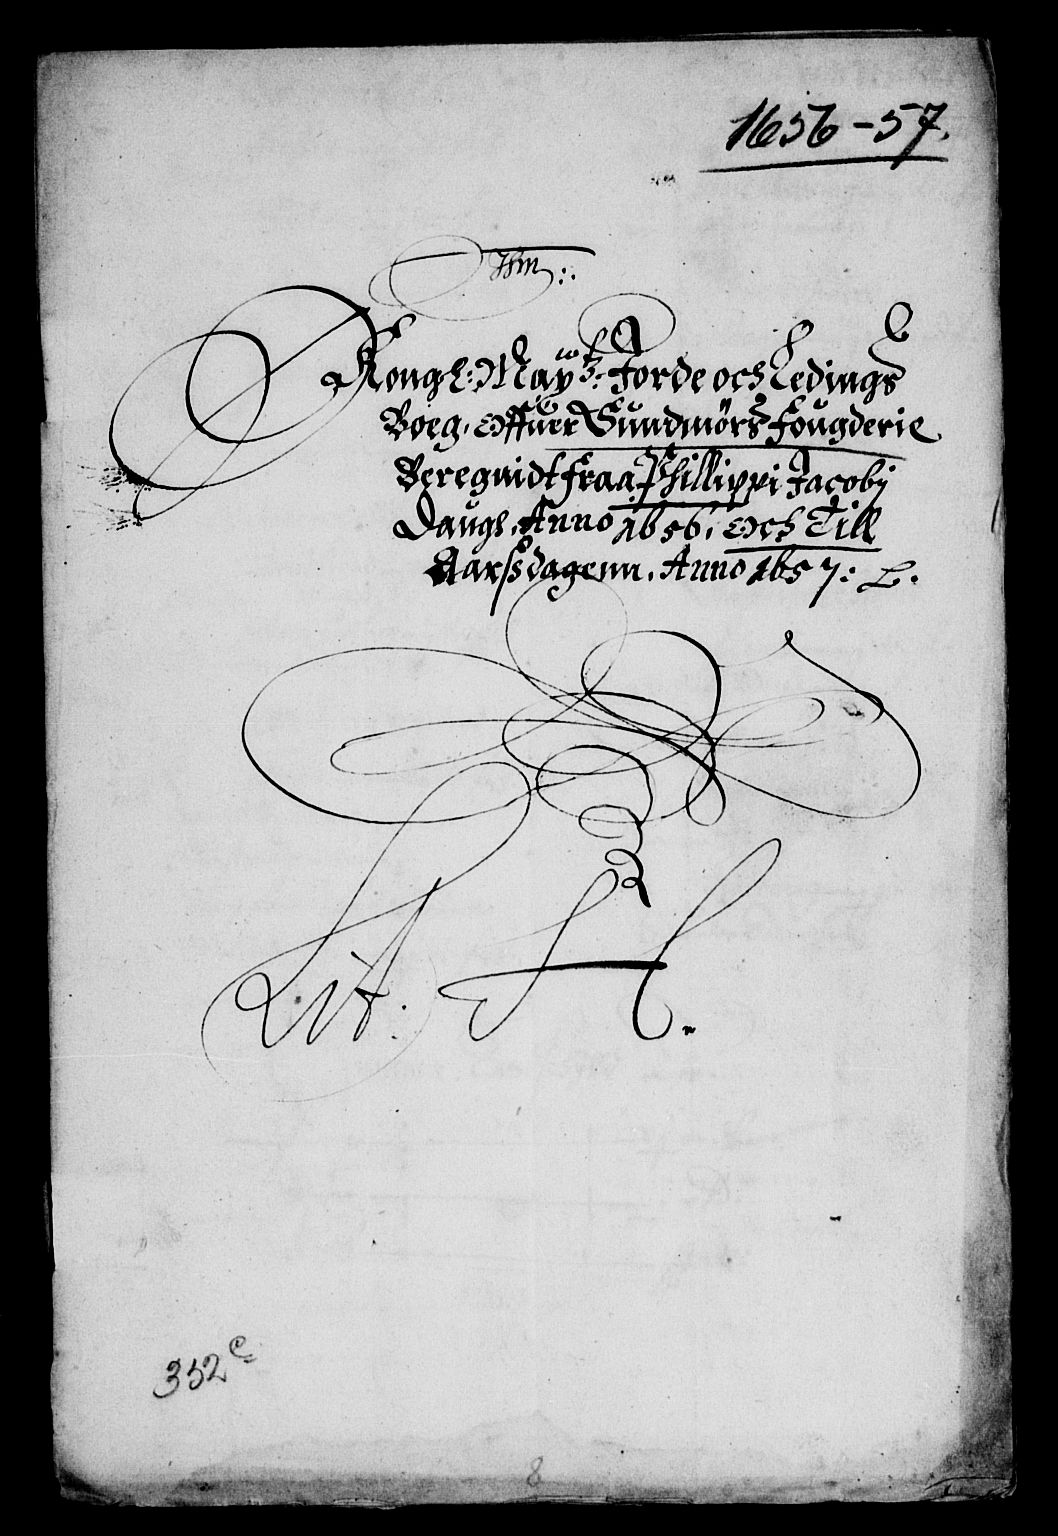 1656-57.
Kongl: Maytz: Jorde och Ledings
Boeg, Offuer Sundmörs fougderie
Beregnidt fraa Phillippi Jacobj
Daugh, Anno 1656, Och Till
Aarsdagenn, Anno 1657:
Lit: H.
352
8